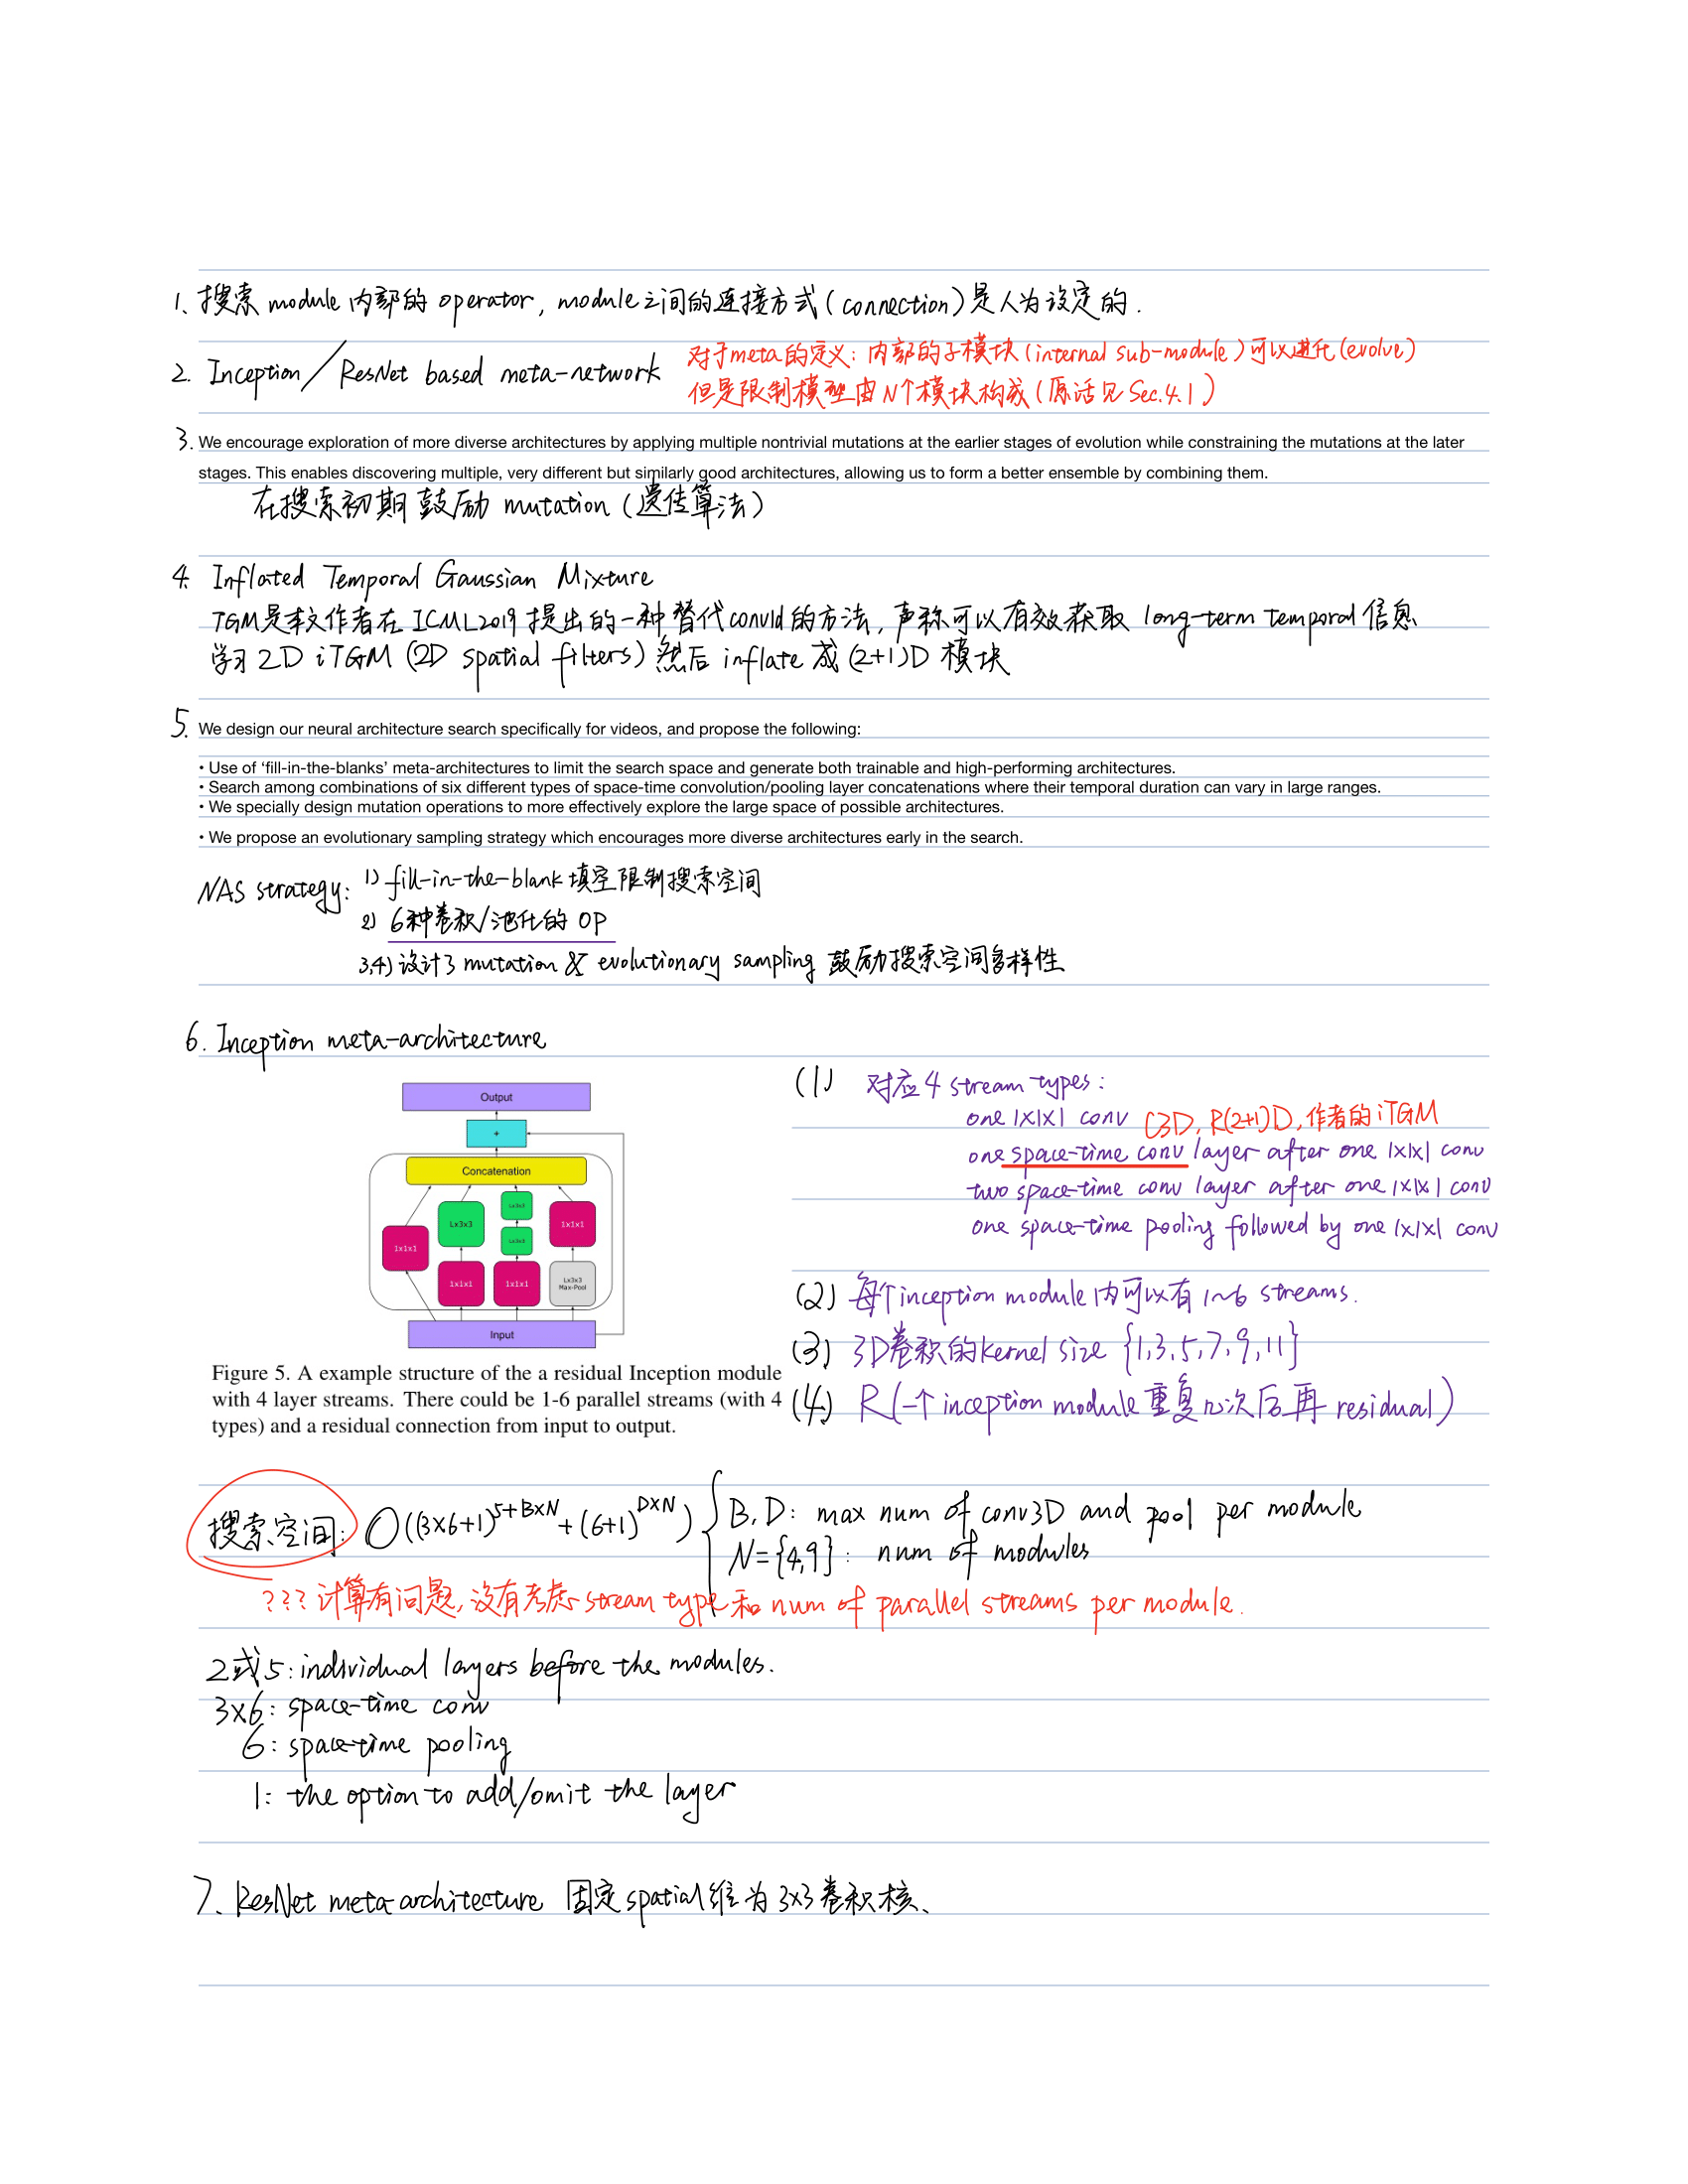 1、搜索 module 内部的 operator, module之间的连接方式 (connection) 是人为设定的.
2. Inception/ResNet based meta-network
对于meta的定义: 内部的子模块 (internal sub-module) 可以进化 (evolve)
但是限制模型由N个模块构成 (原话见 Sec.4.1)
3. We encourage exploration of more diverse architectures by applying multiple nontrivial mutations at the earlier stages of evolution while constraining the mutations at the later
stages. This enables discovering multiple, very different but similarly good architectures, allowing us to form a better ensemble by combining them.
在搜索初期 鼓励 mutation (遗传算法)
4. Inflated Temporal Gaussian Mixture
TGM是本文作者在 ICML2019 提出的一种替代conv1d的方法, 声称可以有效获取 long-term temporal 信息
学习 2D iTGM (2D spatial filters) 然后 inflate 成 (2+1)D 模块
5. We design our neural architecture search specifically for videos, and propose the following:
• Use of ‘fill-in-the-blanks’ meta-architectures to limit the search space and generate both trainable and high-performing architectures.
• Search among combinations of six different types of space-time convolution/pooling layer concatenations where their temporal duration can vary in large ranges.
• We specially design mutation operations to more effectively explore the large space of possible architectures.
• We propose an evolutionary sampling strategy which encourages more diverse architectures early in the search.
NAS strategy: 1) fill-in-the-blank 填空限制搜索空间
2) 6种卷积/池化的 OP
3,4) 设计了 mutation & evolutionary sampling 鼓励搜索空间多样性
6. Inception meta-architecture
Output
+
Concatenation
1x1x1
Lx3x3
Lx3x3
Lx3x3
1x1x1
1x1x1
1x1x1
Lx3x3
Max-Pool
Input
Figure 5. A example structure of the a residual Inception module
with 4 layer streams. There could be 1-6 parallel streams (with 4
types) and a residual connection from input to output.
(1) 对应4 stream types:
one 1x1x1 conv C3D, R(2+1)D, 作者的 iTGM
one space-time conv layer after one 1x1x1 conv
two space-time conv layer after one 1x1x1 conv
one space-time pooling followed by one 1x1x1 conv
(2) 每个inception module内可以有 1~6 streams.
(3) 3D卷积的kernel size {1,3,5,7,9,11}
(4) R (一个inception module 重复几次后再 residual)
搜索空间: O((3×6+1)^{5+B×N} + (6+1)^{D×N}) { B, D: max num of conv3D and pool per module
N={4,9}: num of modules
??? 计算有问题, 没有考虑 stream type 和 num of parallel streams per module.
2或5: individual layers before the modules.
3x6: space-time conv
6: space-time pooling
1: the option to add/omit the layer
7、ResNet meta architecture 固定spatial维为 3x3 卷积核、